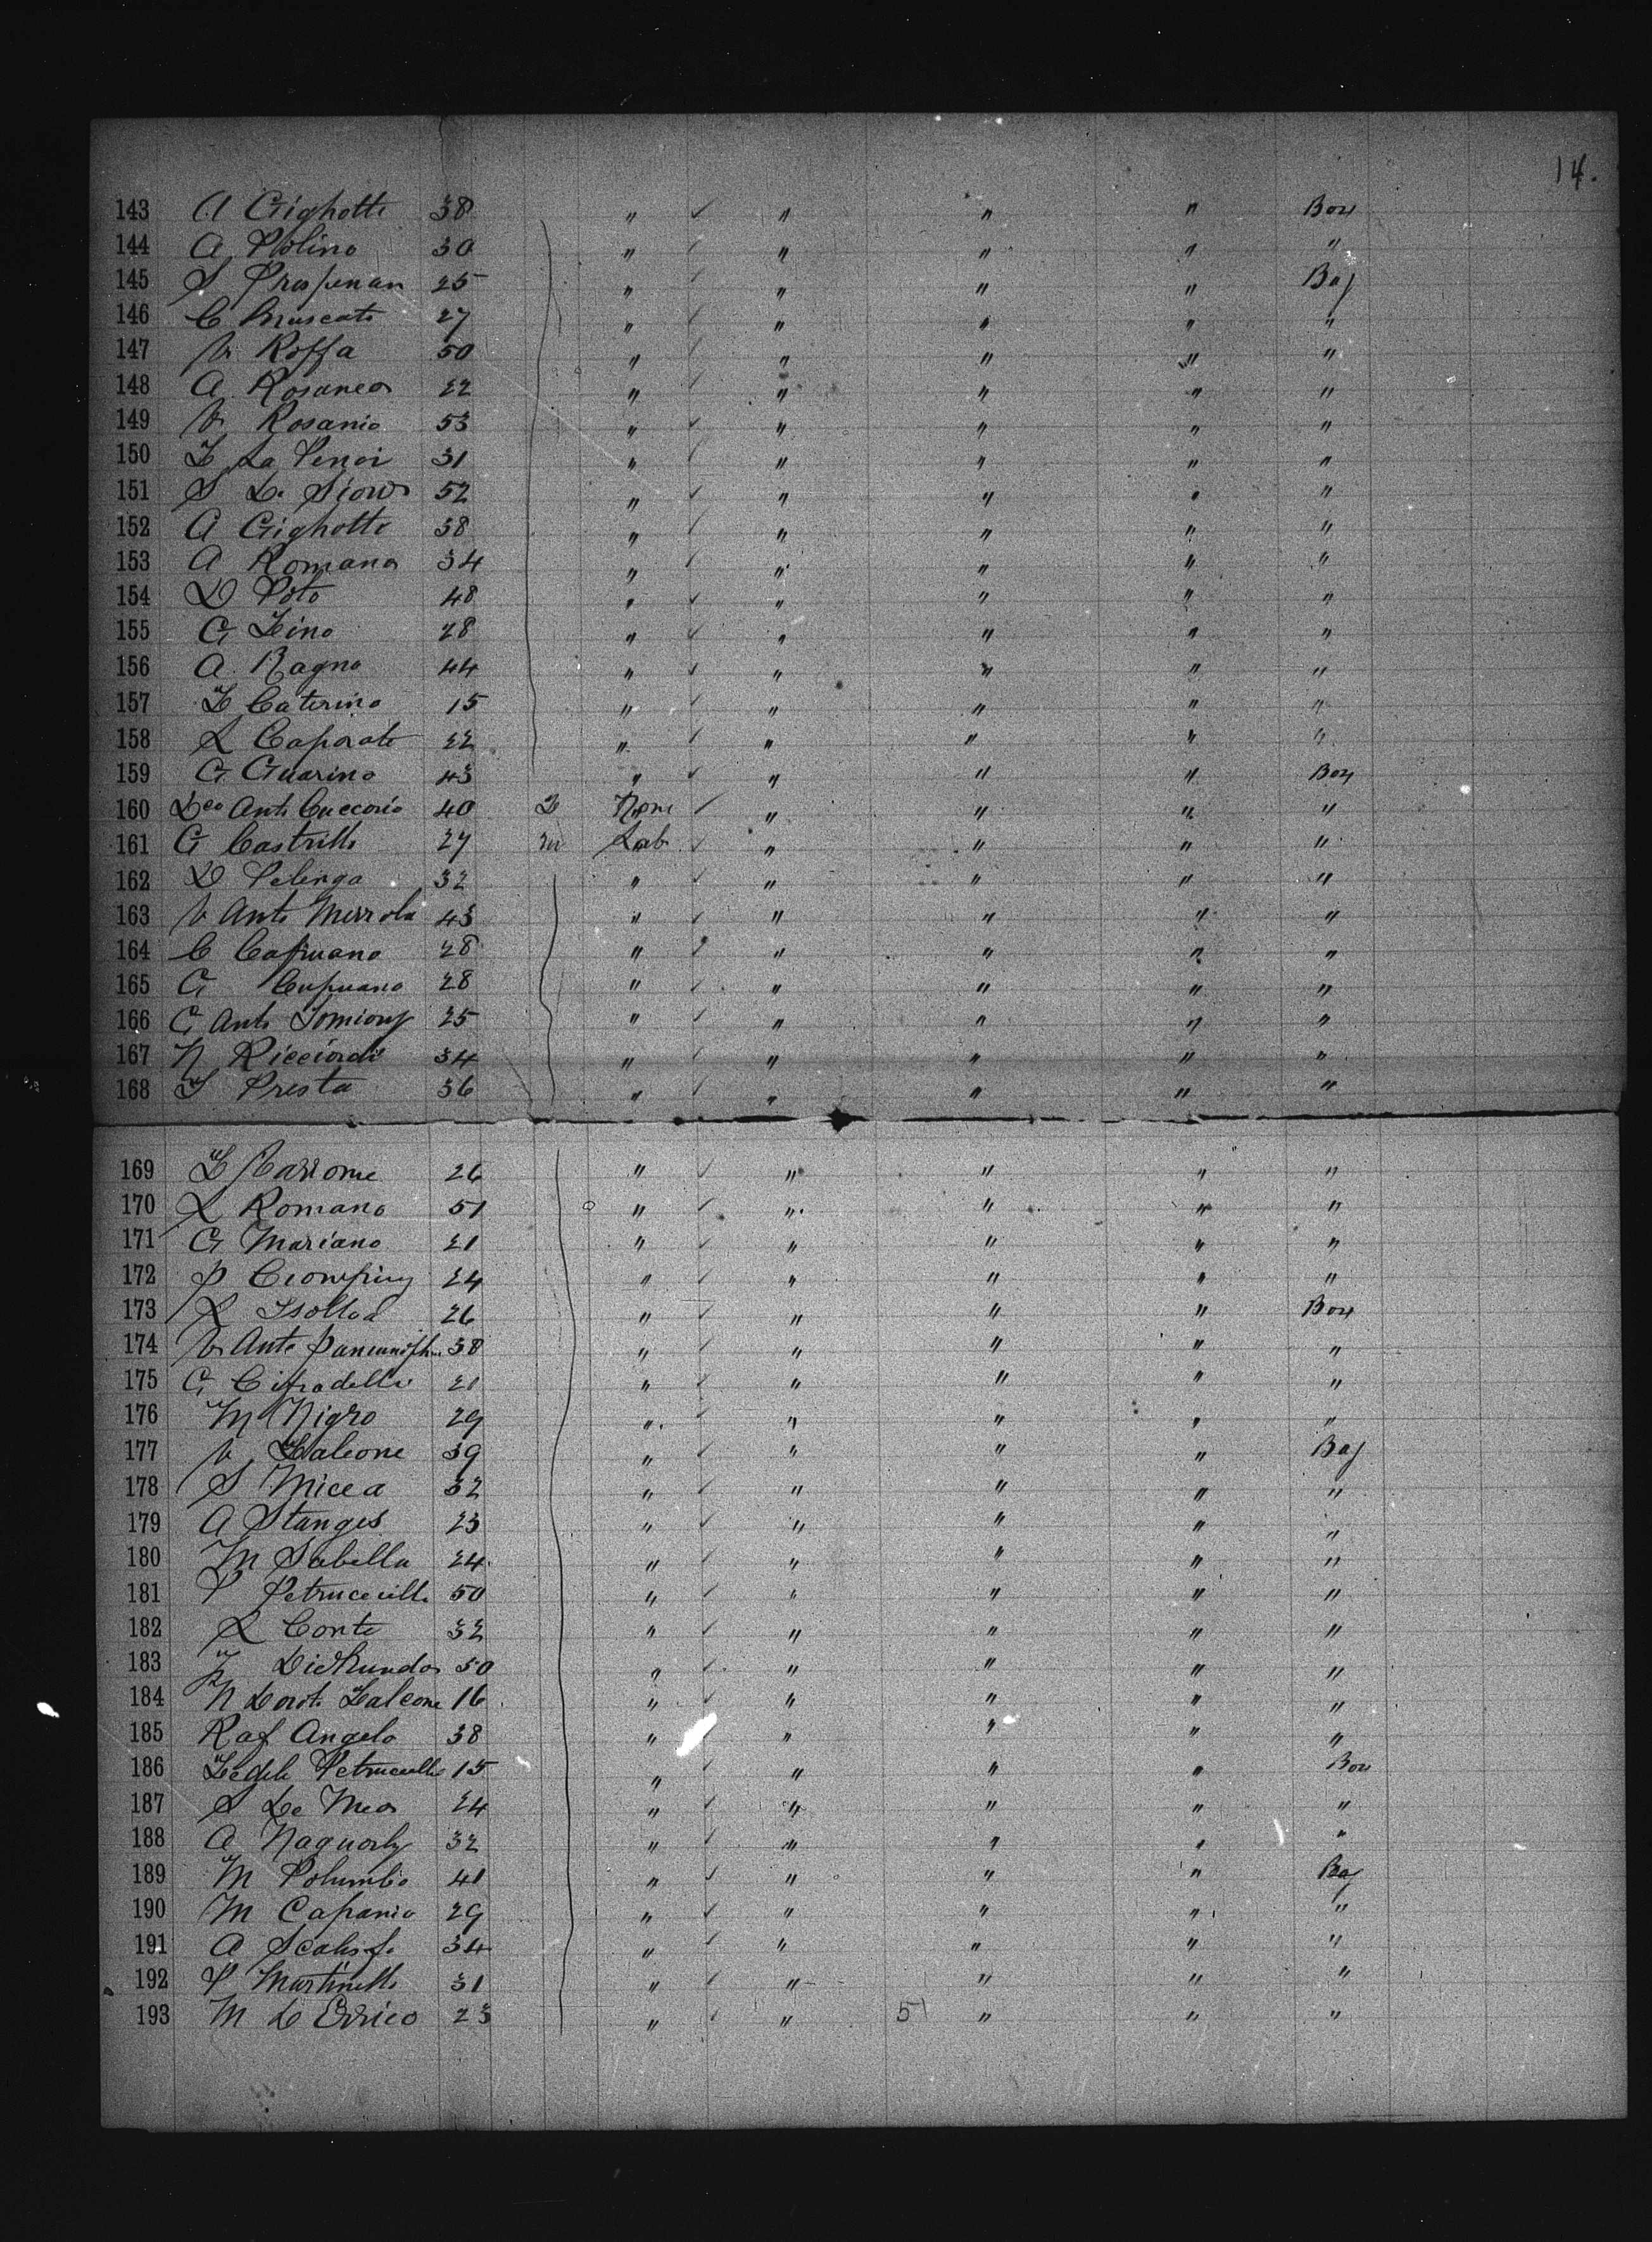 14.
143 A Gighotti 38 " ✓ " " " Box
144 A Polino 30 " ✓ " " " "
145 S Prospenan 25 " ✓ " " " Bag
146 C Muscato 27 " ✓ " " " "
147 V Roffa 50 " ✓ " " " "
148 A Rosaneo 22 " ✓ " " " "
149 V Rosanio 53 " ✓ " " " "
150 F La Penoi 31 " ✓ " " " "
151 S 52 " ✓ " " " "
152 A Gighotti 38 " ✓ " " " "
153 A Romano 34 " ✓ " " " "
154 D Poto 48 " ✓ " " " "
155 G Lino 28 " ✓ " " " "
156 A. Ragno 44 " ✓ " " " "
157 F Caterino 15 " ✓ " " " "
158 L Caporate 22 " ✓ " " " "
159 G. Guarino 43 " ✓ " " " Box
160 Deo Anto Cuccorio 40 D None ✓ " " " "
161 G Castrillo 27 m Lab ✓ " " " "
162 D Pelenga 32 " ✓ " " " "
163 V Anto Merrola 43 " ✓ " " " "
164 C Capuano 28 " ✓ " " " "
165 G Cupuano 28 " ✓ " " " "
166 G Anto 25 " ✓ " " " "
167 N Ricciordi 34 " ✓ " " " "
168 F Presta 36 " ✓ " " " "
169 F 26 " ✓ " " " "
170 L Romano 51 " ✓ " " " "
171 G Mariano 21 " ✓ " " " "
172 P 24 " ✓ " " " "
173 L 26 " ✓ " " " Box
174 V Anto 38 " ✓ " " " "
175 G Cifradelli 21 " ✓ " " " "
176 M Nigro 29 " ✓ " " " "
177 V Faleone 39 " ✓ " " " Bag
178 S Micea 32 " ✓ " " " "
179 A Stanges 23 " ✓ " " " "
180 M Sabella 24 " ✓ " " " "
181 P Petruccilli 50 " ✓ " " " "
182 L Conte 32 " ✓ " " " "
183 F 50 " ✓ " " " "
184 N Donto Faleone 16 " ✓ " " " "
185 Raf Angelo 38 " " " " "
186 Fedele Petruccelli 15 " ✓ " " " Box
187 S De Meo 24 " ✓ " " " "
188 A 32 " ✓ " " " "
189 M Polumbo 41 " ✓ " " " Bag
190 M Capanio 29 " ✓ " " " "
191 A 34 " ✓ " " " "
192 P Martinelli 31 " ✓ " " " "
193 M D Errico 23 " ✓ " 51 " " "